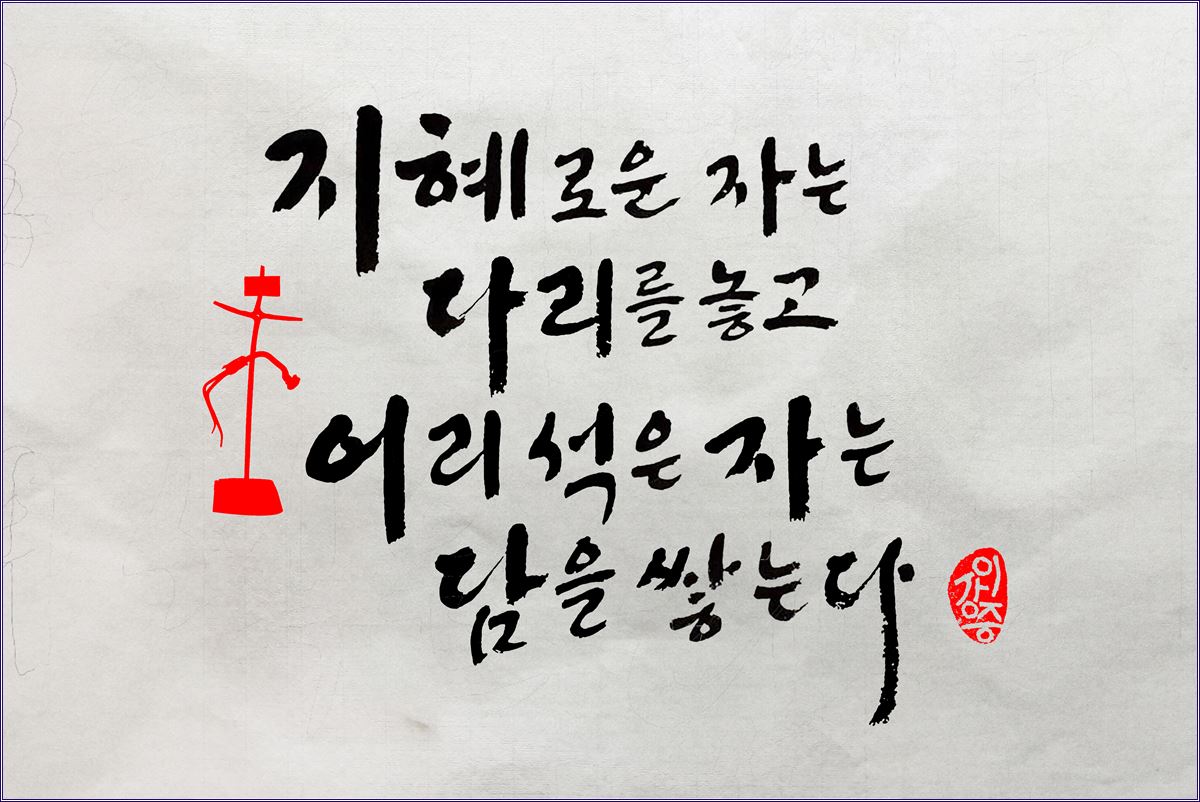 지혜로운 자는
다리를 놓고
어리석은 자는
담을 쌓는다